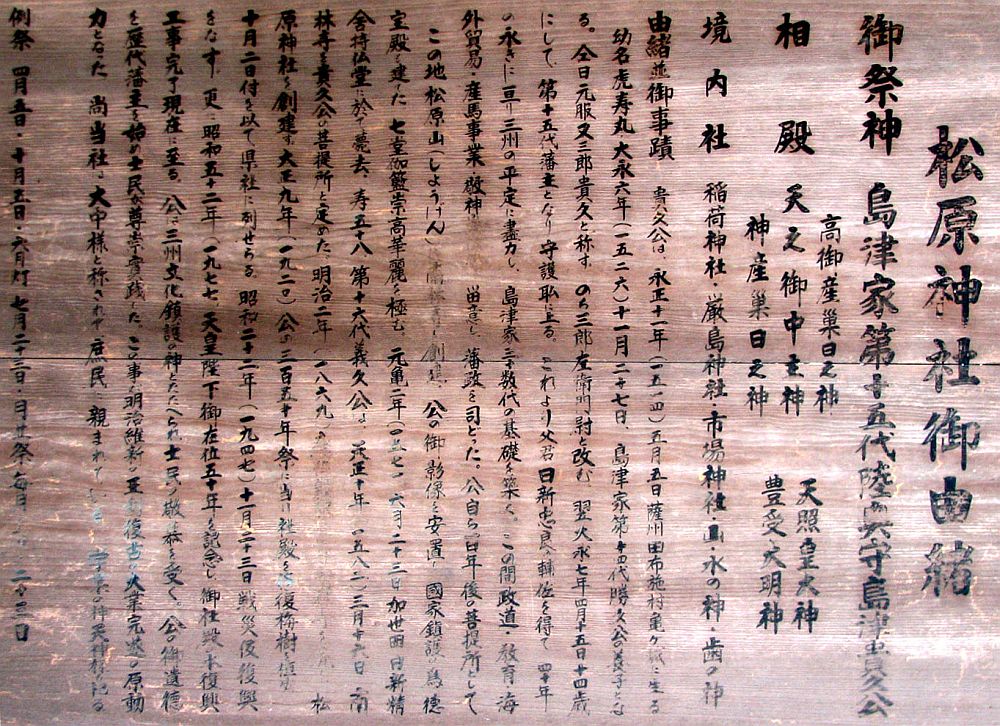 松原神社御由緒
御祭神 島津家第十五代陸奥守島津貴久公
相殿 天之御中主神 高御産巣日之神 神産巣日之神 天照皇大神 豊受大明神
境内社 稲荷神社・厳島神社・市場神社・山・水の神・歯の神
由緒並御事蹟 貴久公は、永正十一年(一五一四)五月五日薩州田布施村亀ヶ城に生る
幼名虎寿丸大永六年(一五二六)十一月二十七日、島津家第十四代勝久公の養子とな
る。仝日元服又三郎貴久と称す。のち三郎左衛門尉と改む 翌大永七年四月十五日十四歳
にして、第十五代藩主となり守護職に上る。これより父君日新忠良公輔佐を得て四十年
の永きに亘り三州の平定に盡力し、島津家三十数代の基礎を築く。この間政道・教育・海
外貿易・産馬事業・敬神 藩政を司どった。公自ら百年後の菩提所として
この地松原山(しようげん) 創建、公の御影像を安置し國家鎮護の為徳
宝殿を建てた 七堂伽藍崇高華麗を極む 元亀二年(一五七一)六月二十三日加世田日新精
舎持仏堂に於て薨去、寿五十八 第十六代義久公は、天正十年(一五八二)三月十六日 南
林寺を貴久公の菩提所と定めた 明治二年(一八六九) 松
原神社を創建す 大正九年(一九二〇)公の三百五十年祭に当り社殿を 復
十月二日付を以て県社に列せらる。昭和二十二年(一九四七)十一月二十三日戦災後復興
をなす、更に昭和五十二年(一九七七)天皇陛下御在位五十年を記念し、御社殿 復興
工事完了現在に至る。公は三州文化鎮護の神とたたへられ士民の敬恭を受く。公の御遺徳
を歴代藩主を始め士民が尊崇實践した。この事が明治維新の王制復古の大業完遂の原動
力となった 尚当社は大中様と称されて庶民に親まれて
例祭 四月五日・十月五日・六月灯 七月二十三日 月次祭・毎月 二十三日